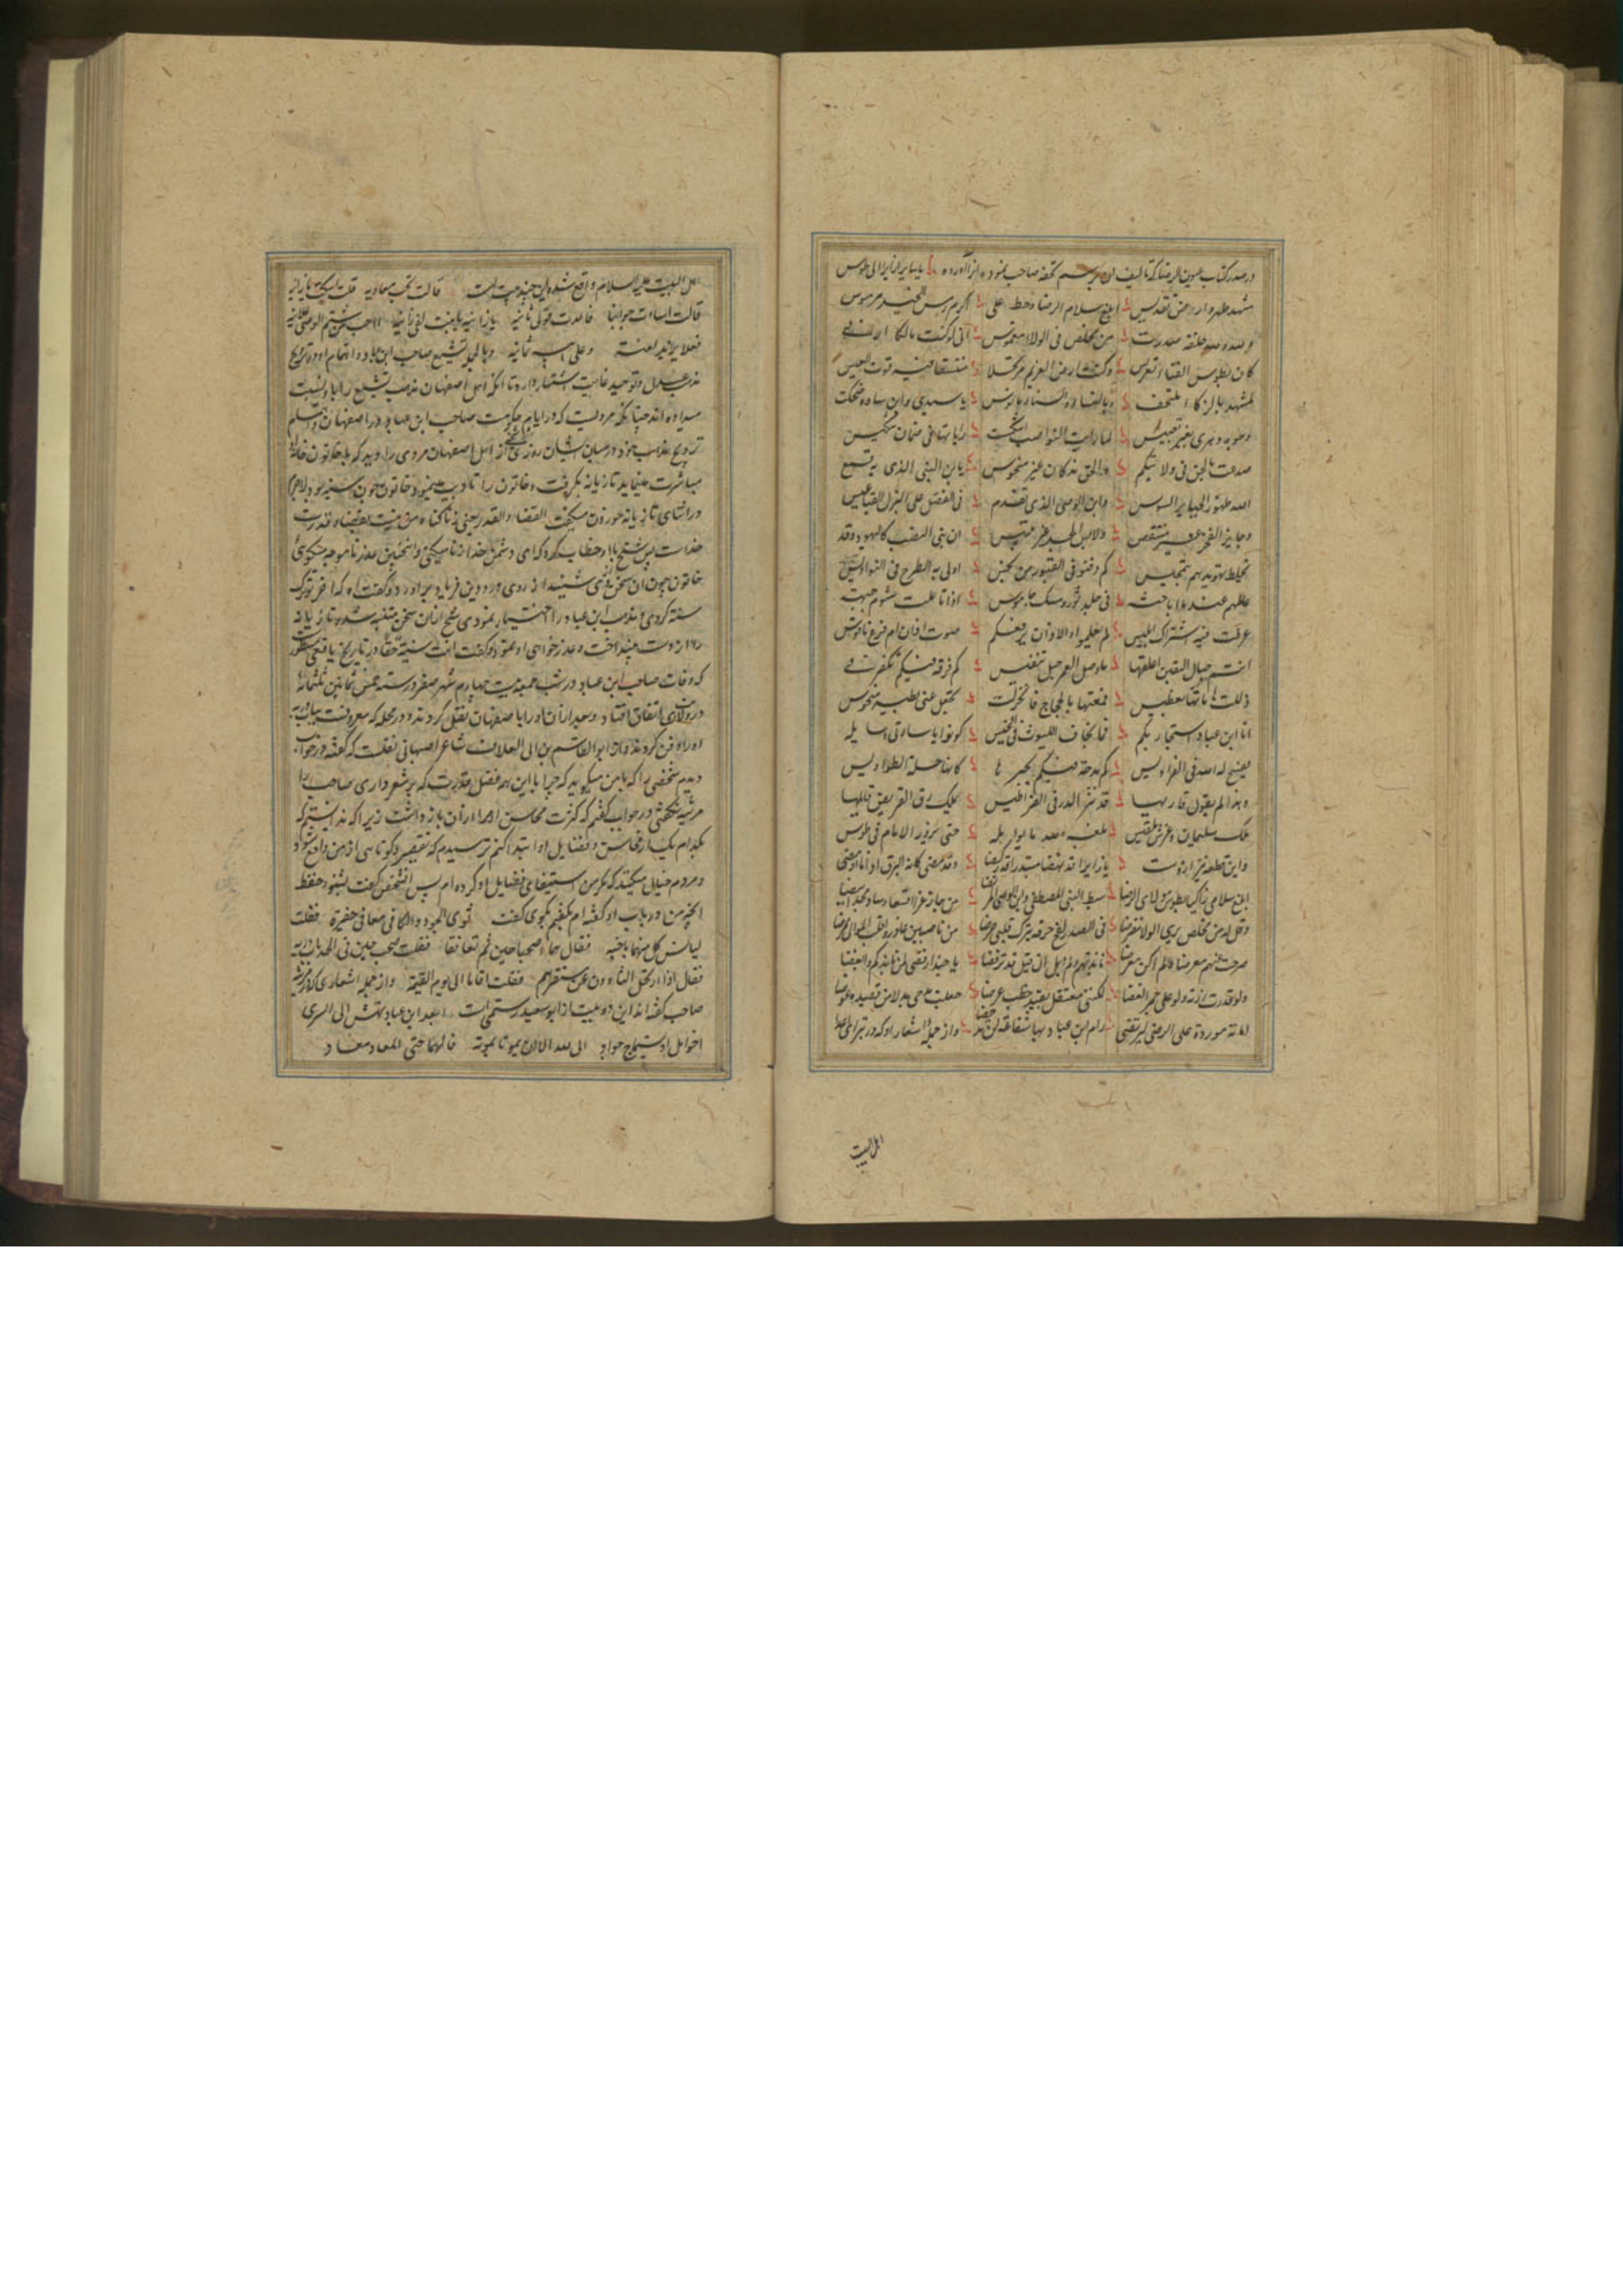 در صدر کتاب عیون الرضا که تالیف ان بر سم تحفه صاحب نموده انرا آورده یا سایرا زایرا الی طوس
مشهد طهر وارض تقدیس ابلغ سلام الرضا وحط علی اکرم رمس لخیر مرموس
والله والله حلفة صدرت من مخلص فی الولاء مغموس انی لو کنت مالکا اربی
کان بطوس الفناء تعریسی وکنت امضی العزیم مرتحلا منتسفا فیه قوة العیس
لمشهد بالزکاء ملتحف وبالسناء والثناء مانوس یا سیدی وابن سادة ضحکت
وجوه دهری بعقب تعبیس لما رایت النواصب انتکست رایاتها فی ضمان تنکیس
صدعت بالحق فی ولائکم والحق مذ کان غیر منحوس یا بن النبی الذی به قمع
الله ظهور الجبابر الشوس وابن الوصی الذی تقدم فی الفضل علی البزل القناعیس
وحایز الفخر غیر منتقص ولابس المجد غیر تلبیس ان بنی النصب کالیهود وقد
یخلط تهویدهم بتمجیس کم دفنوا فی القبور من نجس اولی به الطرح فی النواویس
عالمهم عند ما اباحثه فی جلد ثور ومسک جاموس اذا تاملت شوم جبهته
عرفت فیه اشتراک ابلیس لم یعلموا والاذان یرفعکم صوت اذان ام قرع ناقوس
انتم حبال الیقین اعلقها ما وصل العمر حبل تنفیس کم فرقة فیکم تکفرنی
ذللت هاماتها بفطیس قمعتها بالحجاج فانخزلت تجفل عنی بطیر منحوس
انا ابن عباد استجار بکم فما یخاف اللیوث فی الخیس کونوا ایا سادتی وسایله
یفسح له الله فی الفرادیس کم مدحة فیکم یحبرها کانها حلة الطواویس
وهذه کم یقول قاریها قد نثر الدر فی القراطیس یملک رق القریض قایلها
ملک سلیمان وعرش بلقیس بلغه الله ما یؤمله حتی یزور الامام فی طوس
واین قطعه نیز از وست یا زایرا قد نهضا مبتدرا قد رکضا وقد مضی کانه البرق اذا ما اومضا
ابلغ سلامی زاکیا بطوس مولای الرضا سبط النبی المصطفی وابن الوصی المرتضی من حاز عزا اقعسا وشاد مجدا ابیضا
وقل له من مخلص یری الولا مفترضا فی الصدر لفح حرقة تترک قلبی حرضا من ناصبین غادروا قلب الموالی ممرضا
صرحت عنهم معرضا ولم اکن معرضا نابذتهم ولم ابل ان قیل قد ترفضا یا حبذا رفضی لمن نابذکم وابغضا
ولو قدرت زرته ولو علی جمر الغضا لکننی معتقل بقید خطب عرضا جعلت مدحی بدلا من قصیده وعوضا
امانة موردة علی الرضی لیرتضی رام ابن عباد بها شفاعة لن تدحضا واز جمله اشعار او که در تبرا از اعدای
اهل البیت
اهل البیت علیه السلام واقع شده این چند بیت است قالت تحب معاویة قلت اسکتی یا زانیه
قالت اسات جوابنا فاعدت قولی ثانیه یا زانیه یا بنت الفی زانیه ااحب من شتم الوصی علانیه
فعلی یزید لعنة وعلی ابیه ثمانیه وبالجمله تشیع صاحب ابن عباد واهتمام او در ترویج
مذهب عدل وتوحید غایت اشتهار دارد تا انکه اهل اصفهان مذهب تشیع را باو نسبت
میداده اند چنانکه مرویست که در ایام حکومت صاحب ابن عباد در اصفهان وتسلم
ترویج مذهب خود در میان ایشان روزی شیخی از اهل اصفهان مردی را دید که با خاتون خانه او
مباشرت مینماید تازیانه بگرفت وخاتون را تادیب مینمود خاتون چون سنیه بود ولاجرم
در اثنای تازیانه خوردن میگفت القضاء والقدر یعنی زنا گناه من نیست بقضا وقدرت
خداست پس شیخ باو خطاب کرد که ای دشمن خدا زنا میکنی وانچنین عذر ناموجه میگوئی
خاتون چون ان سخن از وی شنید از روی درد دین فریاد براورد وگفت اه که اخر ترک
سنت کردی ومذهب ابن عباد را اختیار نمودی شیخ ازان سخن متنبه شده تازیانه
را از دست بینداخت وعذرخواهی او نمود وگفت انت سنیة حقا در تاریخ یافعی مسطور است
که وفات صاحب ابن عباد در شب جمعه بیست چهارم شهر صفر در سنه خمس ثمانین ثلثمائه
در ولایت ری اتفاق افتاد وبعد ازان او را باصفهان نقل کردند ودر محله که معروفست بباب دریه
او را دفن کردند واز ابو القاسم بن ابی العلا شاعر اصبهانی نقلست که گفت در خواب
دیدم شخصی را که با من میگوید که چرا با این همه فضل وقدرت که بر شعر داری صاحب را
مرثیه نگفتی در جواب گفتم که کثرت محاسن او مرا ازان بازداشت زیرا که ندانستم که
بکدام یک از محاسن وفضایل او ابتدا کنم ترسیدم که تقصیر وکوتاهی از من واقع شود
ومردم خیال میکنند که مگر من استیفای فضایل او کرده ام پس انشخص گفت بشنو وحفظ
انچه من در باب او گفته ام بگفتم بگوی گفت ثوی الجود والکافی معا فی حفیرة فقلت
لیانس کل منهما باخیه فقال هما اصطحبا حین ثم تعانقا فقلت ضجیعین فی لحد بباب دریه
فقال اذا ارتحل الثاوون عن مستقرهم فقلت اقاما الی یوم القیمة واز جمله اشعاری که در مرثیه
صاحب گفته اند این دو بیت از ابو سعید رستمی است ابعد ابن عباد یهش الی السری
اخو امل او یستماح جواد ابی الله الا ان یموتا بموته فما لهما حتی المعاد معاد